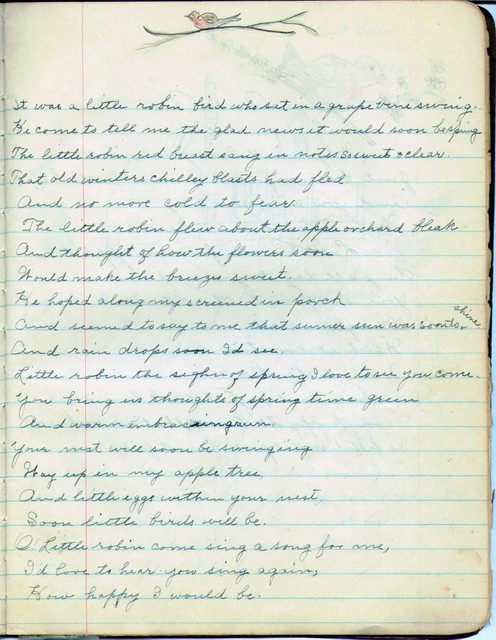 It was a little robin bird who sat in a grape vine swing.
He come to tell me the glad news it would soon be spring
The little robin red breast sang in notes so sweet & clear.
That old winters chilley blasts had fled
And no more cold to fear.
The little robin flew about the apple orchard bleak
And thought of how the flowers soon
Would make the breezes sweet.
He hoped along my screened in porch
And seemed to say to me that summer sun was soon to shine
And rain drops soon I'd see.
Little robin the sighn of spring I love to see you come.
You bring us thoughts of spring time green
And warm embracing sun.
Your nest will soon be swinging
Way up in my apple tree,
And little eggs within your nest,
Soon little birds will be.
O! Little robin come sing a song for me,
I'd love to hear you sing again,
How happy I would be.